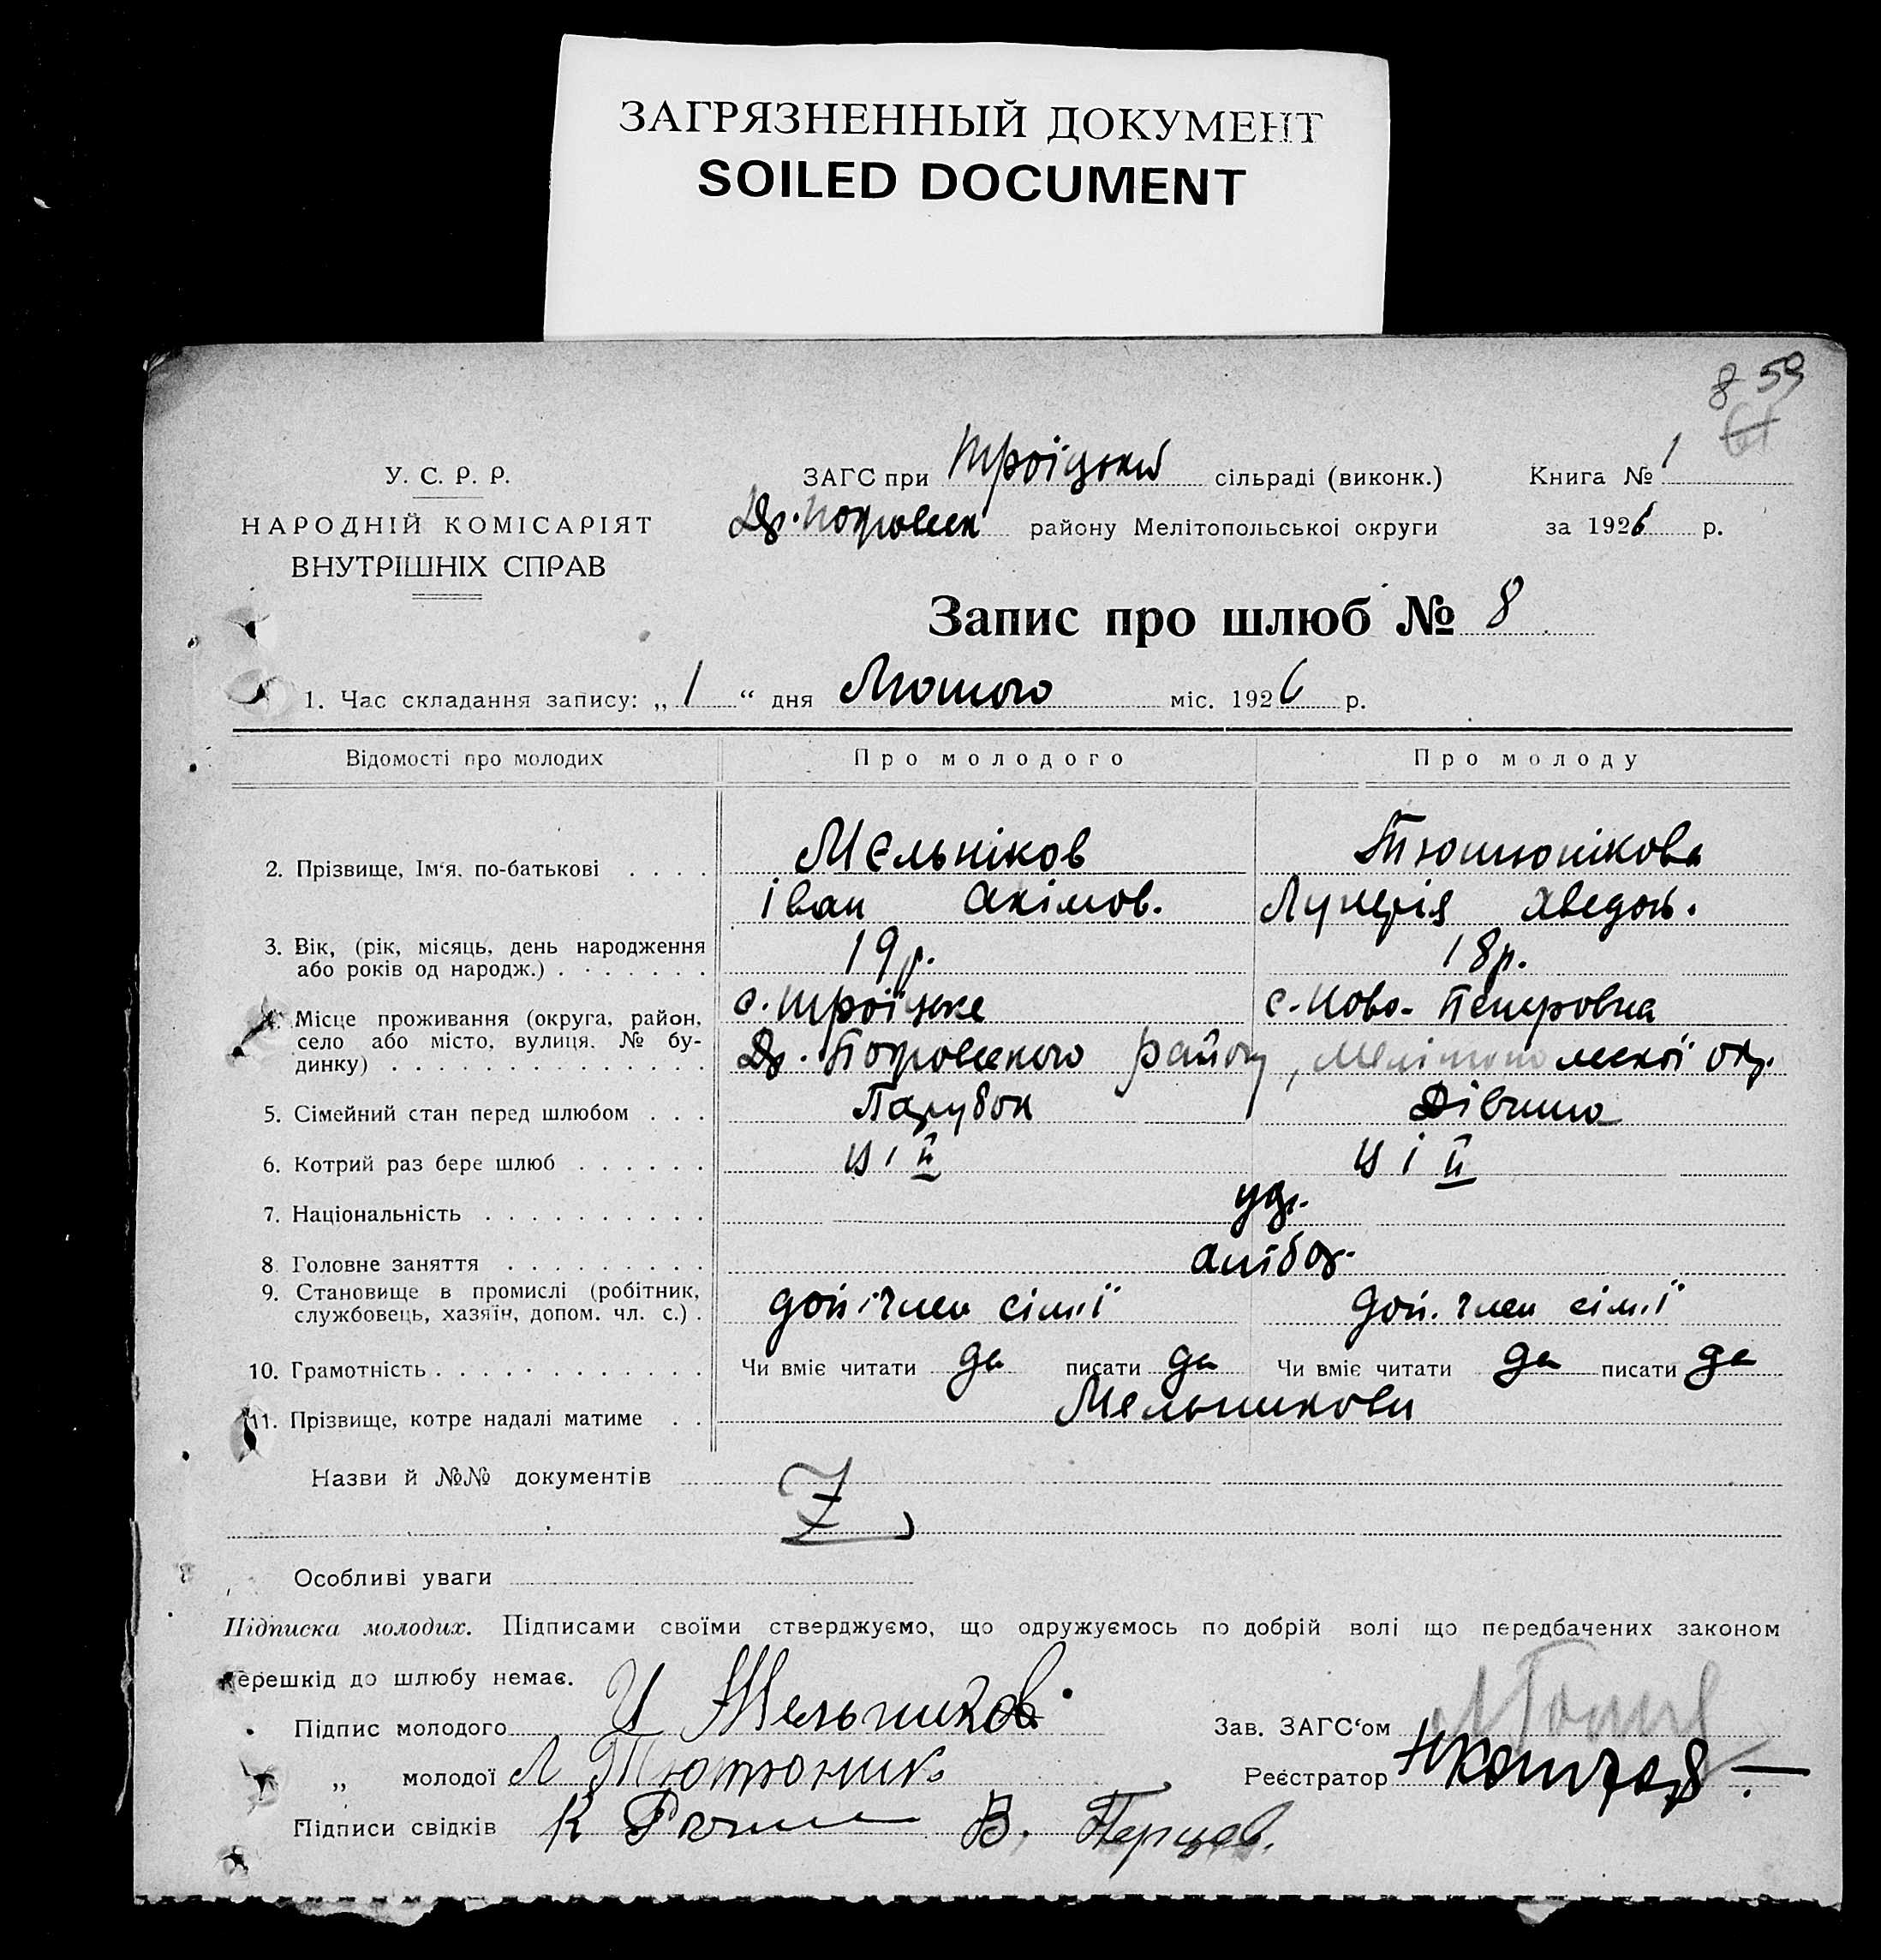 ЗАГРЯЗНЕННЫЙ ДОКУМЕНТ
SOILED DOCUMENT
8 59
61
У. С. Р. Р.
НАРОДНІЙ КОМІСАРІЯТ
ВНУТРІШНІХ СПРАВ
ЗАГС при Троїцькій сільраді (виконк.) Книга № 1
району Мелітопольської округи за 1926 р.
Запис про шлюб № 8
1. Час складання запису: „ 1 “ дня Лютого міс. 1926 р.
Відомості про молодих Про молодого Про молоду
2. Прізвище, Ім‘я. по-батькові . . . . Мельніков Тютюнікова
Іван Акімов. Лукерія Хведор.
3. Вік, (рік, місяць, день народження
або років од народж.) . . . . . . . 19 р. 18 р.
4. Місце проживання (округа, район,
село або місто, вулиця. № бу-
динку) . . . . . . . . . . . . . .
с. Троїцьке с. Ново-Петровка
району, Мелітополскої окр.
5. Сімейний стан перед шлюбом . . . Парубок Дівчина
6. Котрий раз бере шлюб . . . . . .
7. Національність . . . . . . . . . .
8. Головне заняття . . . . . . . . . хлібор.
9. Становище в промислі (робітник,
службовець, хазяїн, допом. чл. с.) . доп. член сім'ї доп. член сім'ї
10. Грамотність . . . . . . . . . . . Чи вміє читати да писати да Чи вміє читати да писати да
11. Прізвище, котре надалі матиме . . Мельникови
Назви й №№ документів
Особливі уваги
Підписка молодих. Підписами своїми стверджуємо, що одружуємось по добрій волі що передбачених законом
перешкід до шлюбу немає.
Підпис молодого И Мельников Зав. ЗАГС‘ом
„ молодої Л Тютюник Реєстратор
Підписи свідків К В. Перцев.